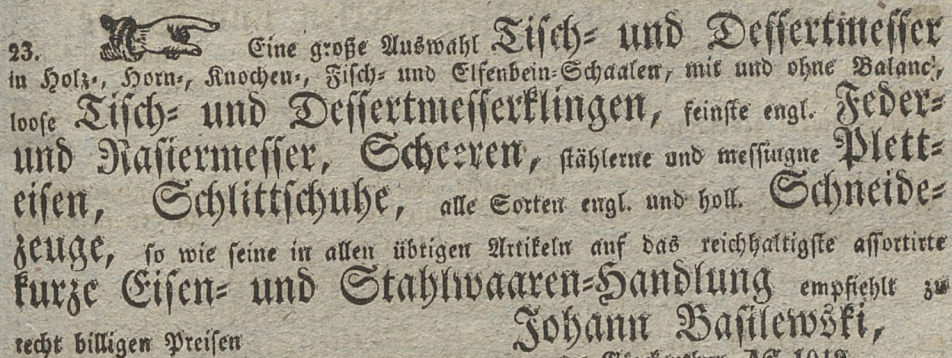 23. Eine große Auswahl Tisch- und Dessertmesser
in Holz-, Horn-, Knochen-, Fisch- und Elfenbein-Schaalen, mit und ohne Balanc',
loose Tisch- und Dessertmesserklingen, feinste engl. Feder-
und Rasiermesser, Scheeren, stählerne und messingne Plett-
eisen, Schlittschuhe, alle Sorten engl. und holl. Schneide-
zeuge, so wie seine in allen übrigen Artikeln auf das reichhaltigste assortirte
kurze Eisen- und Stahlwaaren-Handlung empfiehlt zu
recht billigen Preisen Johann Basilewski,